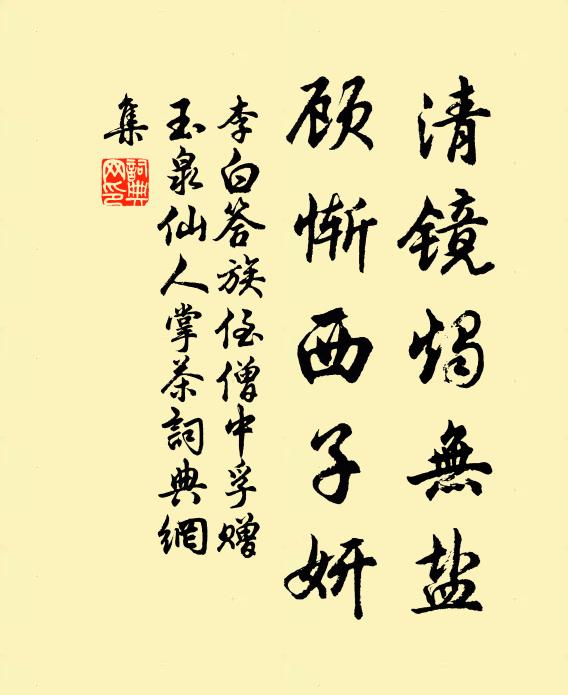 清镜烛無盐
顾惭西子妍
李白答族侄僧中孚赠
玉泉仙人掌茶詞典網
集
詞典网印